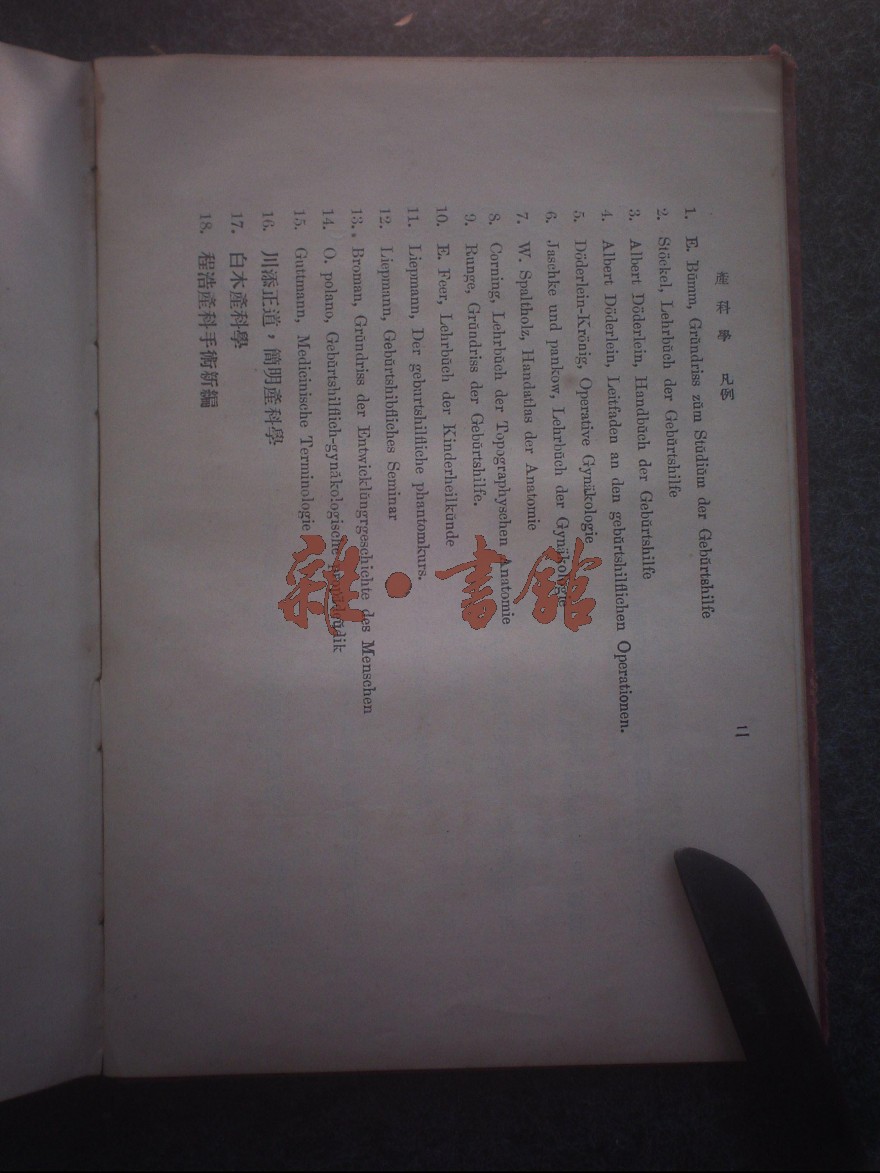 產科學 凡例
二
1. E. Būmm, Grūndriss zūm Stūdiūm der Gebūrtshilfe
2. Stöckel, Lehrbūch der Gebūrtshilfe
3. Albert Döderlein, Handbūch der Gebūrtshilfe
4. Albert Döderlein, Leitfaden an den gebūrtshilflichen Operationen.
5. Döderlein-Krönig, Operative Gynäkologie
6. Jaschke und pankow, Lehrbūch dar Gynäkologie
7. W. Spaltholz, Handatlas der Anatomie
8. Corning, Lehrbūch der Topographyschen Anatomie
9. Runge, Grūndriss der Gebūrtshilfe.
10. E. Feer, Lehrbūch der Kinderheilkūnde
11. Liepmann, Der geburtshilfliche phantomkurs.
12. Liepmann, Gebūrtshibfliches Seminar
13. Broman, Grūndriss der Entwicklūngrgeschichte des Menschen
14. O. polano, Gebūrtshilflich-gynäkologische
15. Guttmann, Medicinische Terminologie
16. 川添正道，簡明產科學
17. 白木產科學
18. 程浩產科手術新編
雜·書館